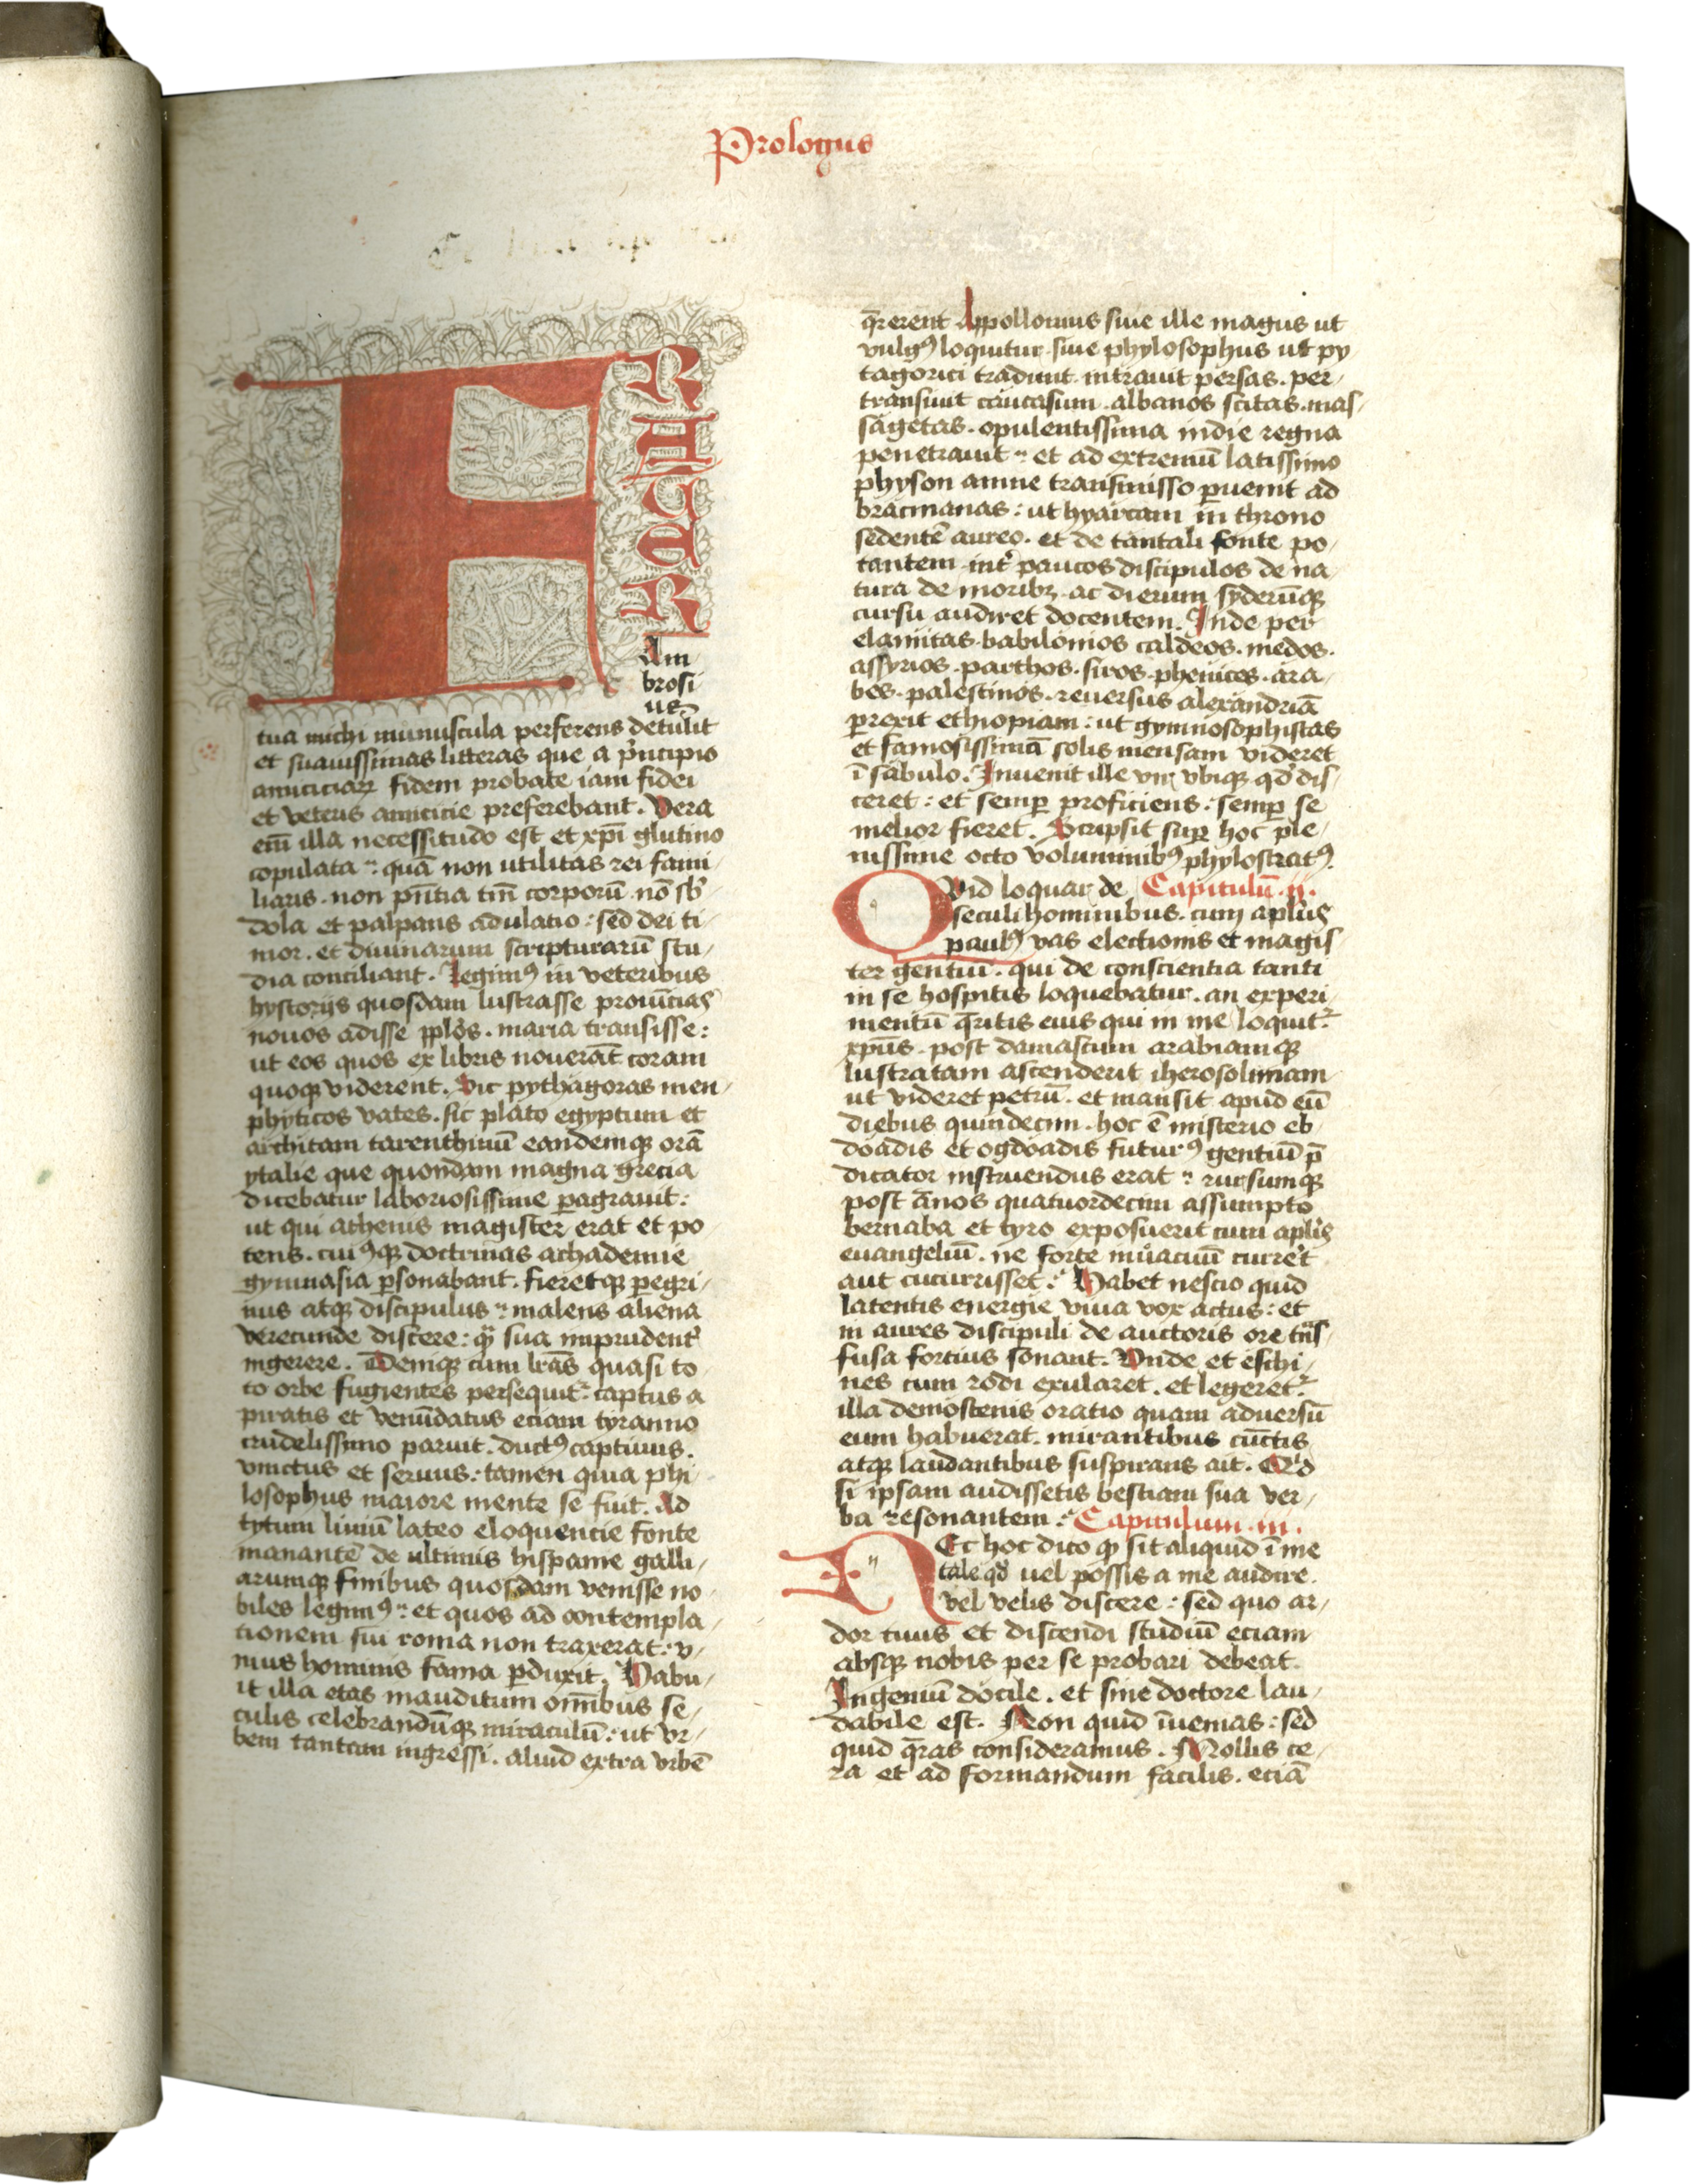 Prologus
FRATER
Am
brosi
us
tua michi munuscula perferens detulit
et suauissimas litteras que a pͥncipio
amiciciaꝝ fidem probate iam fidei
et veteris amicicie preferebant. Vera
em̄ illa necessitudo est et xp̄i glutino
copulata : quā non utilitas rei fami
liaris . non pn̄tia tm̄ corporū . nō sb̓
dola et palpans adulatio : sed dei ti
mor . et diuinarum scripturarū stu
dia conciliant. Legimꝰ in veteribus
hystorijs quosdam lustrasse prouīcias
nouos adisse pplo̓s . maria transisse :
ut eos quos ex libris nouerāt coram
quoqꝫ viderent. Sic pythagoras men
phyticos vates . sic plato egyptum et
architam tarenthinū eandemqꝫ orā
ytalie que quondam magna grecia
dicebatur laboriosissime ꝑagrauit :
ut qui athenis magister erat et po
tens . cuiꝰqꝫ doctrinas achademie
gymnasia ꝑsonabant . fieretqꝫ ꝑegri
nus atqꝫ discipulus : malens aliena
verecunde discere : qͣꝫ sua imprudent̓
ingerere . Deniqꝫ cum lr̄as quasi to
to orbe fugientes persequit᷑ captus a
piratis et venūdatus eciam tyranno
crudelissimo paruit . ductꝰ captiuus .
vinctus et seruus : tamen quia phi
losophus maiore mente se fuit. Ad
tytum liuiū lateo eloquencie fonte
manantē de ultimis hispanie galli
arumqꝫ finibus quosdam venisse no
biles legimꝰ : et quos ad contempla
tionem sui roma non traxerat : v
nius hominis fama ꝑduxit. Habu
it illa etas inauditum omībus se
culis celebrandūqꝫ miraculū : ut vr
bem tantam ingressi . aliud extra vrbē
q̄rerent Appollonius siue ille magus ut
vulgꝰ loquitur siue phylosophus ut py
tagorici tradunt . intrauit persas . per
transiuit caucasum . albanos scitas . mas
sagetas . opulentissima indie regna
penetrauit : et ad extremū latissimo
physon amne transmisso ꝑuenit ad
bracmanas : ut hyarcam in throno
sedentē aureo . et de tantali fonte po
tantem int̓ paucos discipulos de na
tura de moribꝫ ac dierum syderūqꝫ
cursu audiret docentem. Inde per
elamitas . babilonios caldeos . medos .
assyrios . parthos . siros . phenices . ara
bes . palestinos . reuersus alexandriā
ꝑrexit ethiopiam : ut gymnosophistas
et famosissimā solis mensam videret
ī sabulo. Inuenit ille vir vbiqꝫ qd̓ dis
ceret : et semꝑ proficiens : semꝑ se
melior fieret. Scripsit suꝑ hoc ple
nissime octo voluminibꝰ phylostratꝰ.
QVid loquar de Capitulū .ij.
seculi hominibus . cum apl̓us
paulꝰ vas electionis et magis
ter gentiū . qui de conscientia tanti
in se hospitis loquebatur . an experi
mentū q̄ritis eius qui in me loquit᷑
xpūs . post damascum arabiamqꝫ
lustratam ascenderit iherosolimam
ut videret petrū . et mansit apud eū
diebus quindecim . hoc ē misterio eb
doadis et ogdoadis futurꝰ gentiū p̄
dicator instruendus erat : rursumqꝫ
post ānos quatuordecim assumpto
bernaba et tyro exposuerit cum apl̓is
euangeliū . ne forte inuacuū curre̓t
aut cucurrisset : Habet nescio quid
latentis energie viua vox actus : et
in aures discipuli de auctoris ore tn̄s
fusa fortius sonant. Vnde et eschi
nes cum rodi exularet . et legeret᷑
illa demostenis oratio quam aduersū
eum habuerat . mirantibus cūctis
atqꝫ laudantibus suspirans ait . Qͥd
si ipsam audissetis bestiam sua ver
ba resonantem : Capitulum .iii.
NEc hoc dico qꝫ sit aliquid ī me
tale qd̓ uel possis a me audire .
vel velis discere : sed quo ar
dor tuus et discendi studiū eciam
absqꝫ nobis per se probari debeat
Ingeniū docile . et sine doctore lau
dabile est. Non quid īuenias : sed
quid q̄ras consideramus . Mollis ce
ra et ad formandum facilis . eciā